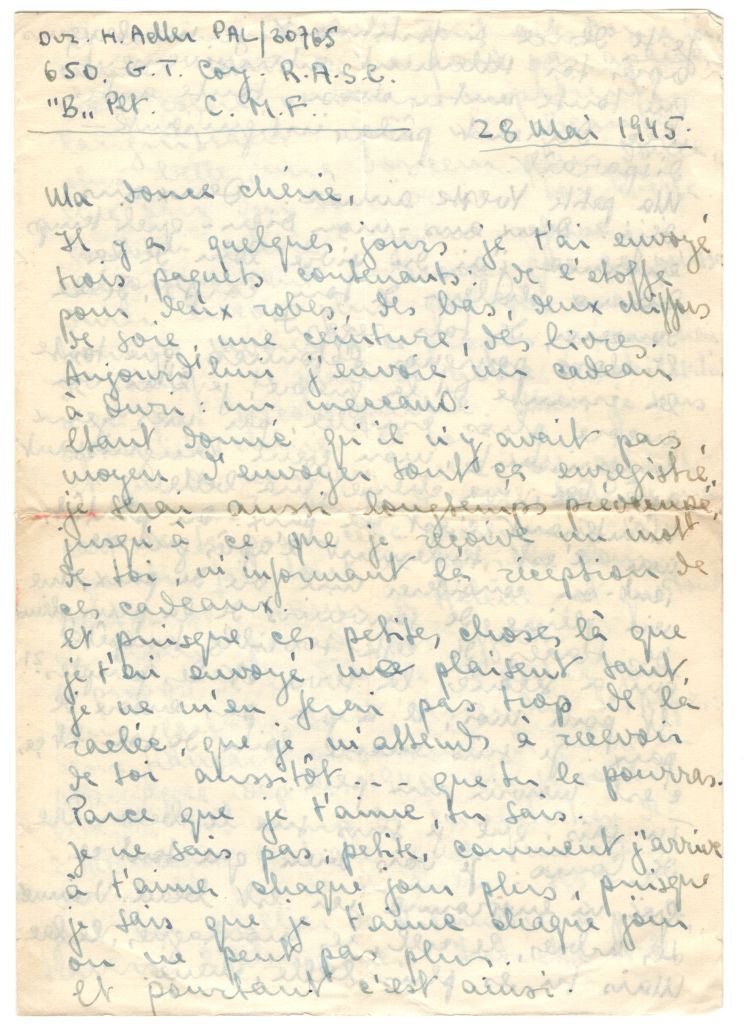 Dvr. H. Adler PAL/30765
650. G.T. Coy. R.A.S.C.
"B„ Plt. C.M.F.
28 Mai 1945.
Ma douce chérie,
Il y a quelques jours je t'ai envoyé
trois paquets contenants: de l'etoffe
pour deux robes, des bas, deux chiffons
de soie, une ceinture, des livres.
Aujourd'hui j'envoie un cadeau
à Ouri: un meccano.
Etant donné qu'il n'y avait pas
moyen d'envoyer tout ça enregistré,
je serai aussi longtemps préoccupé,
jusqu'à ce que je reçoive un mot
de toi, m'informant la réception de
ces cadeaux.
Et puisque ces petites choses là que
je t'ai envoyé me plaisent tant,
je ne m'en ferai pas trop de la
raclée, que je m'attends à recevoir
de toi aussitôt... que tu le pourras.
Parce que je t'aime, tu sais.
Je ne sais pas, petite, comment j'arrive
à t'aimer chaque jour plus, puisque
je sais que je t'aime chaque jour
on ne peut pas plus.
Et pourtant c'est ainsi.